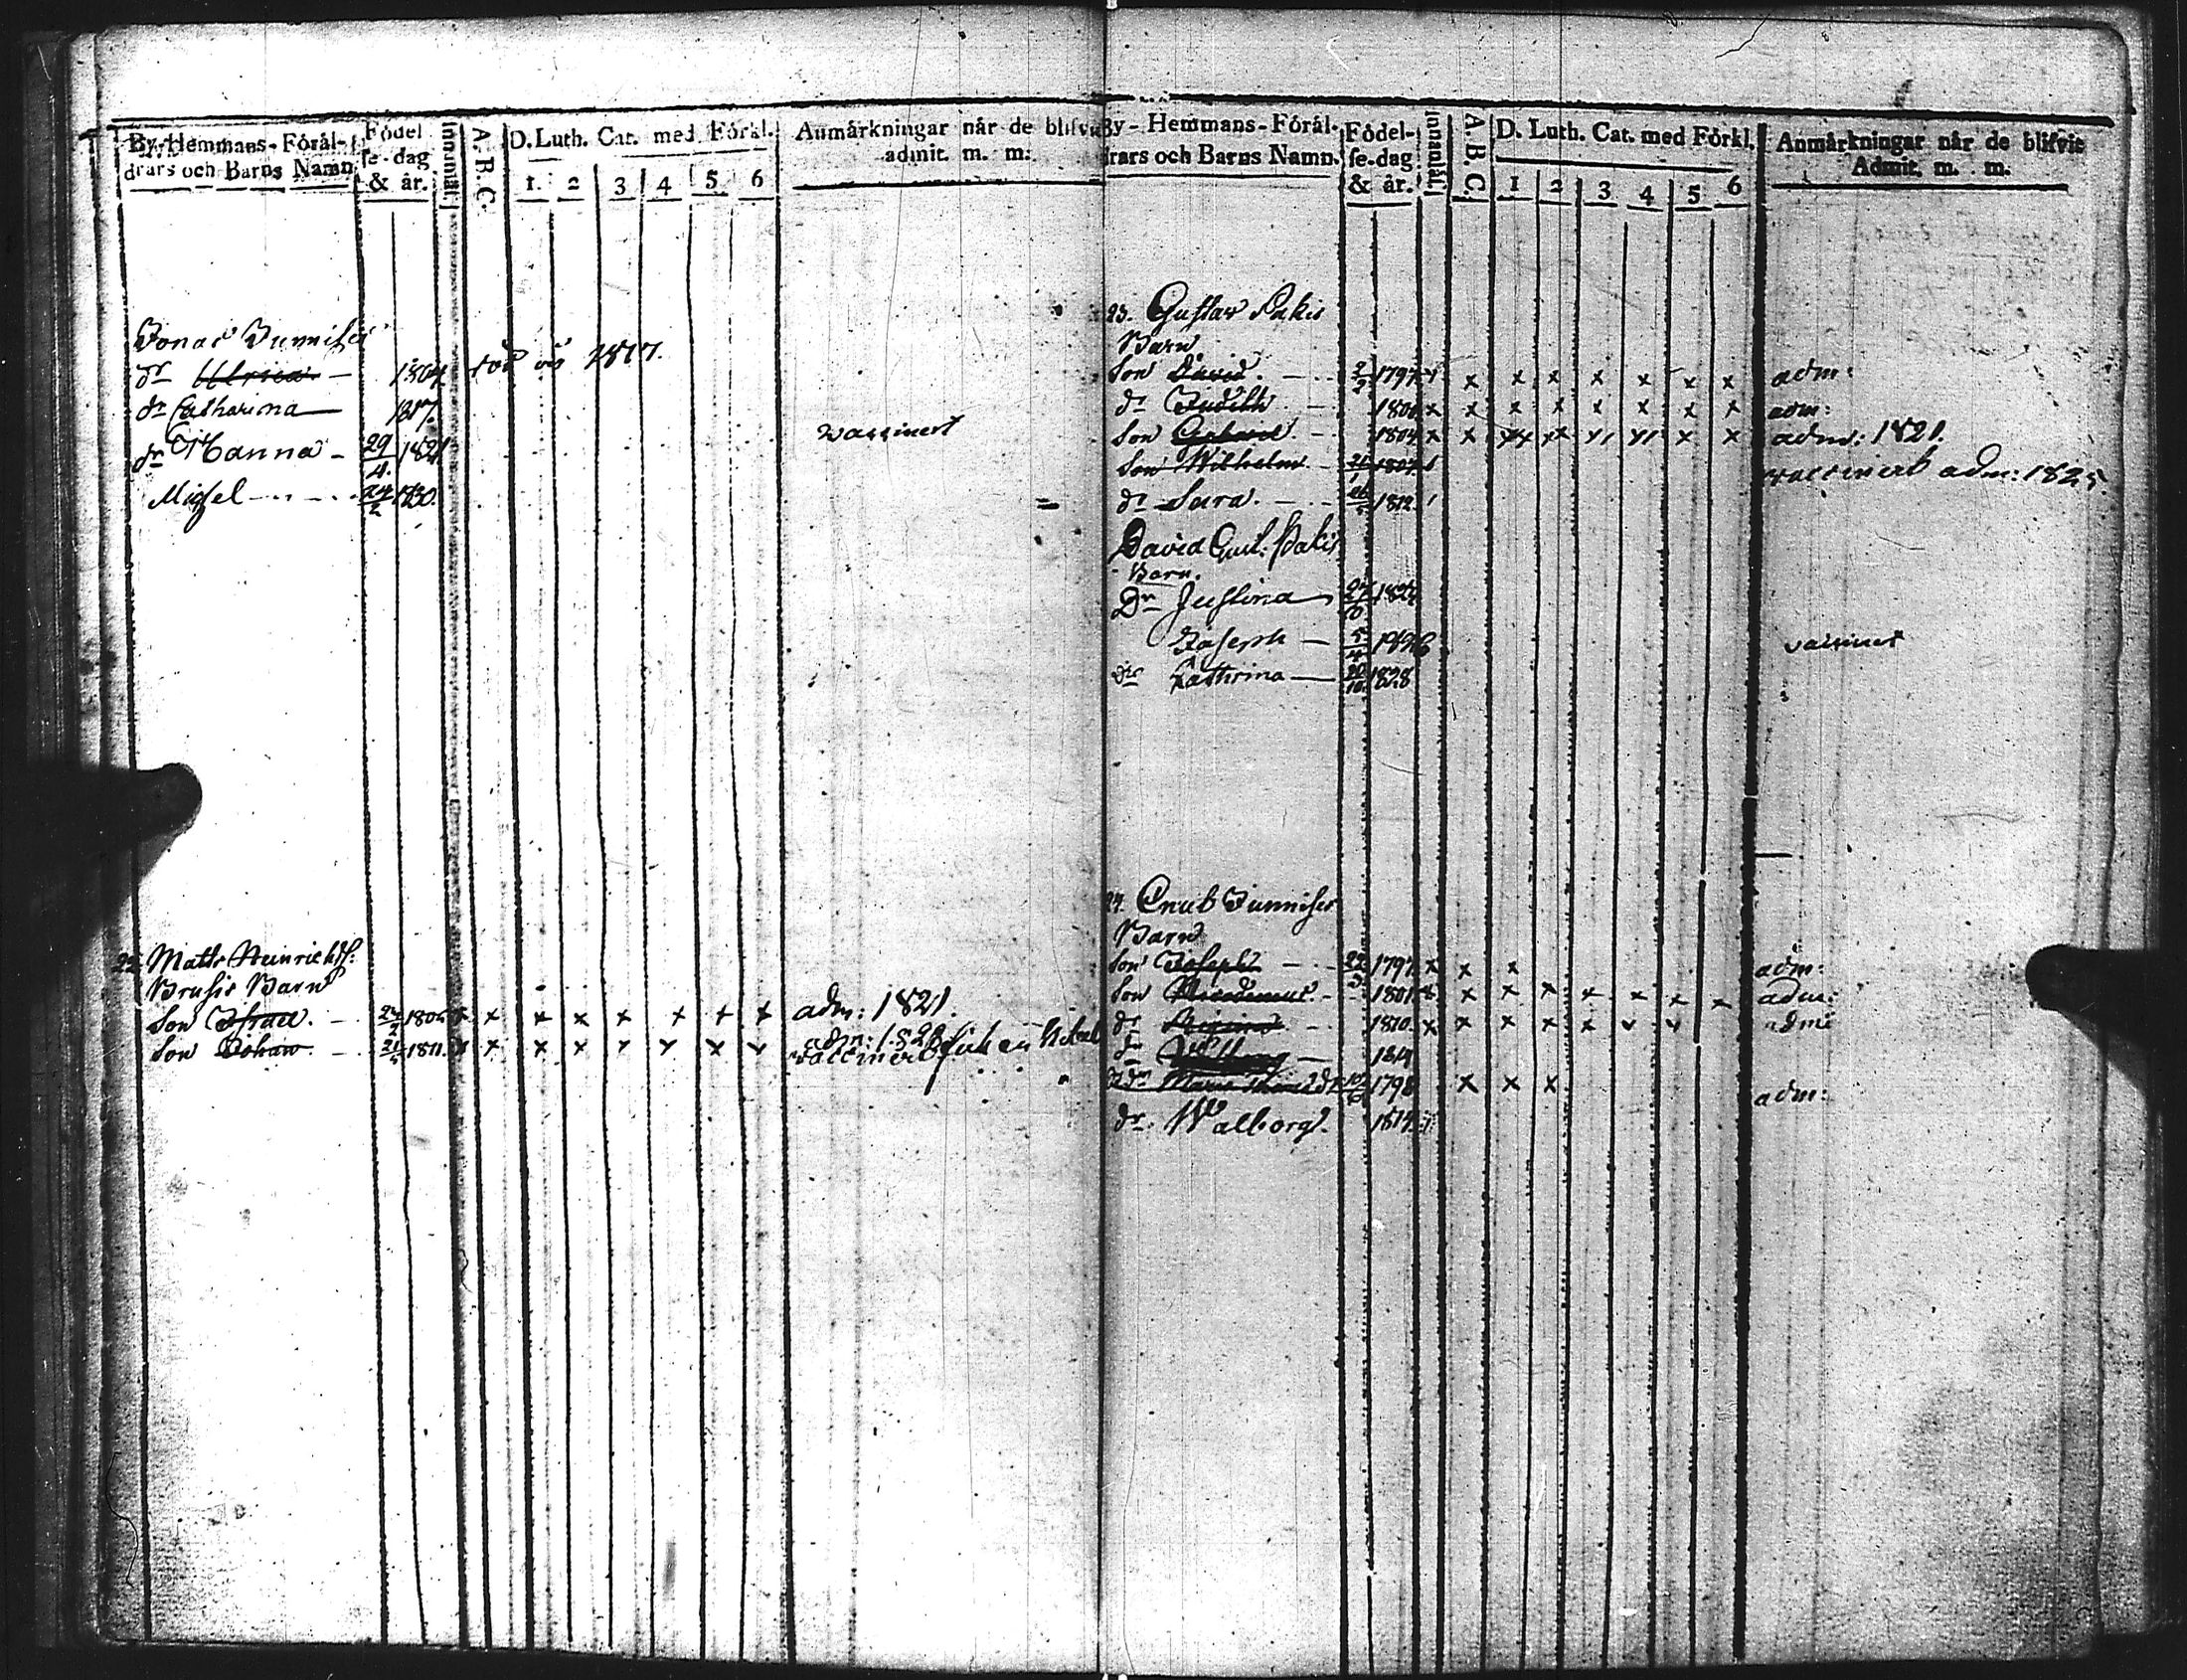 By-Hemmans-Förål-
drars och Barns Namn
Födel
se-dag
& år.
Innanläs.
A. B. C.
D. Luth. Cat. med Förkl.
1. 2 3 4 5 6
Anmärkningar når de blifvit
admit. m. m.
Jonas Junnises
dr Ulrica 1804 död
1817.
dr Catharina 1817.
dr Hanna 29/4 1821 vaccinert
Michel 24/2 1830.
22. Matts Heinrichss:
Brusis Barn
Son Israel. 1806 x x x x x x x x adm: 1821.
Son Johan. 1811. x x x x x x x x adm:
vaccinerb
By-Hemmans-Förål-
drars och Barns Namn.
Födel-
se-dag
& år.
Innanläs.
A. B. C.
D. Luth. Cat. med Förkl.
1 2 3 4 5 6
Anmärkningar når de blifvit
Admit. m. m.
23. Gustav Pakis
Barn
Son David. 2/2 1797 x x x x x x x adm:
dr Judith 1800 x x x x x x x x adm:
Son Gabriel. 1804 x x xx xx x x adm: 1821.
Son Wilhelm 1807 vaccinerb adm: 1825.
dr Sara. 1812.
David Gust: Pakis
Barn.
Dr Justina 1824
Joseph 5/4 1826 vaccinert
dr Cathrina 20/10 1828
24. Cnut Junnises
Barn
Son Joseph 1797 x x x adm:
Son Nicodemus. 1801 x x x x x x x adm:
dr 1810 x x x x x adm:
dr 1814
Maria 1798 x x x adm:
dr Walborg. 1814